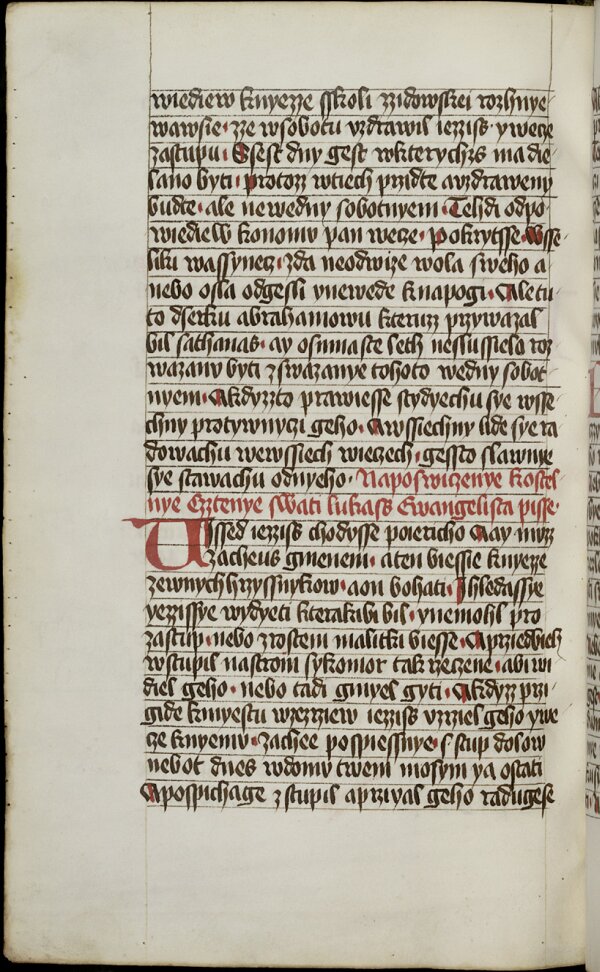 wiediew knyezze sskoli zzidowskei rozhnye
wawsie zze wsobotu vzdrawil iezziss ywece
zastupu Ssest dny gest wkterychzs ma die
lano byti protozz wtiech przidte avzdraweny
budte ale newedny sobotnyem Tehdi odpo
wiediew konomv pan wece pokrytsse Wsse
liki wassynecz zda neodwize wola sweho a
nebo osla odgesli ynewede knapogi Ale tu
to dserku abrahamowu kteruzz przywazal
bil sathanas ay osmnaste leth neslussielo roz
wazanv byti zswazanye tohoto wedny sobot
nyem Akdyzzto prawiesse stydyechu sye wsse
chny protywnyczi geho Awssiechny lide sye ra
dowachu wewssiech wieczech gessto slawnye
sye stawachu odnyeho Naposwiczenye kostel
nye Cztenye swati lukass Ewangelista pisse
Vssed iezziss chodysse poiericho Aay muzz
zacheus gmenem aten biesse knyezze
zewnychhrzyssnykow aon bohati Ihledassye
yezzissye wydyeti kterakibi bil ynemohl pro
zastup nebo zrostem malitki biesse Aprziedbieh
wstupil nastrom sykomor tak rzecene abi wi
diel geho nebo tadi gmyel gyti Akdyzz przi
gide kmyestu wzezrziew iezziss vzrziel geho ywe
cze knyemv zachee pospiessnye sstup dolow
nebot dnes wdomv twem mosym ya ostati
Apospichage zstupil aprziyal geho radugese